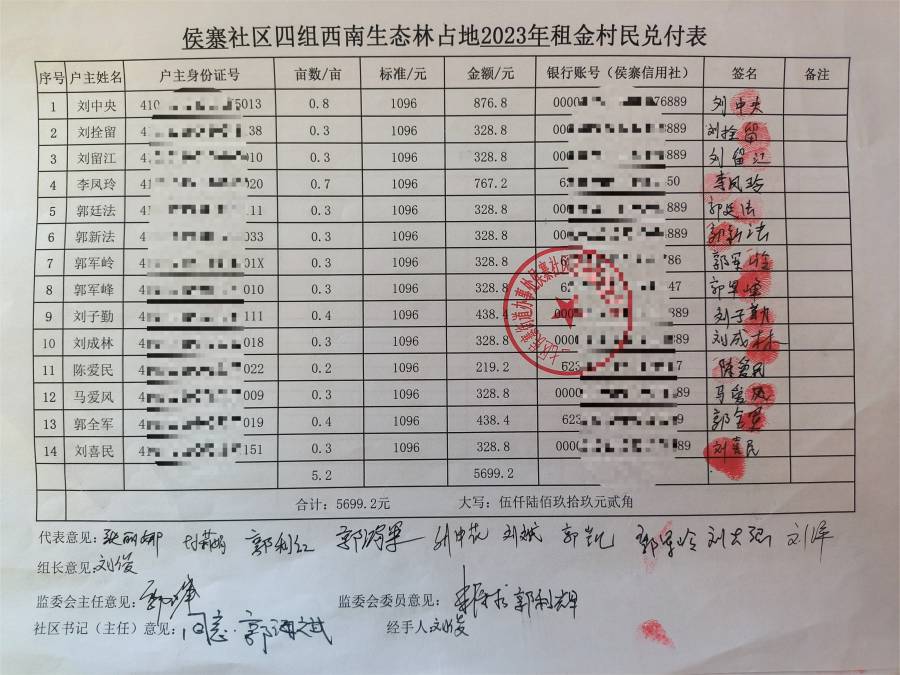 侯寨社区四组西南生态林占地2023年租金村民兑付表
序号 户主姓名 户主身份证号 亩数/亩 标准/元 金额/元 银行账号（侯寨信用社） 签名 备注
1 刘中央 410 5013 0.8 1096 876.8 0000 76889 刘中央
2 刘拴留 41 38 0.3 1096 328.8 000 889 刘拴留
3 刘留江 41 010 0.3 1096 328.8 000 889 刘留江
4 李凤玲 41 020 0.7 1096 767.2 62 50 李凤玲
5 郭廷法 41 111 0.3 1096 328.8 000 889 郭廷法
6 郭新法 4 033 0.3 1096 328.8 000 889 郭新法
7 郭军岭 41 01X 0.3 1096 328.8 62 86 郭军岭
8 郭军峰 41 010 0.3 1096 328.8 6 47 郭军峰
9 刘子勤 41 111 0.4 1096 438.4 000 889 刘子勤
10 刘成林 41 018 0.3 1096 328.8 000 889 刘成林
11 陈爱民 41 022 0.2 1096 219.2 623 7 陈爱民
12 马爱风 41 009 0.3 1096 328.8 0000 89 马爱风
13 郭全军 41 019 0.4 1096 438.4 623 9 郭全军
14 刘喜民 41 151 0.3 1096 328.8 0000 689 刘喜民
5.2 5699.2
合计：5699.2元 大写：伍仟陆佰玖拾玖元贰角
代表意见： 郭利红 刘斌
组长意见：刘俊
监委会主任意见： 监委会委员意见： 郭利辉
社区书记（主任）意见： 同意 经手人